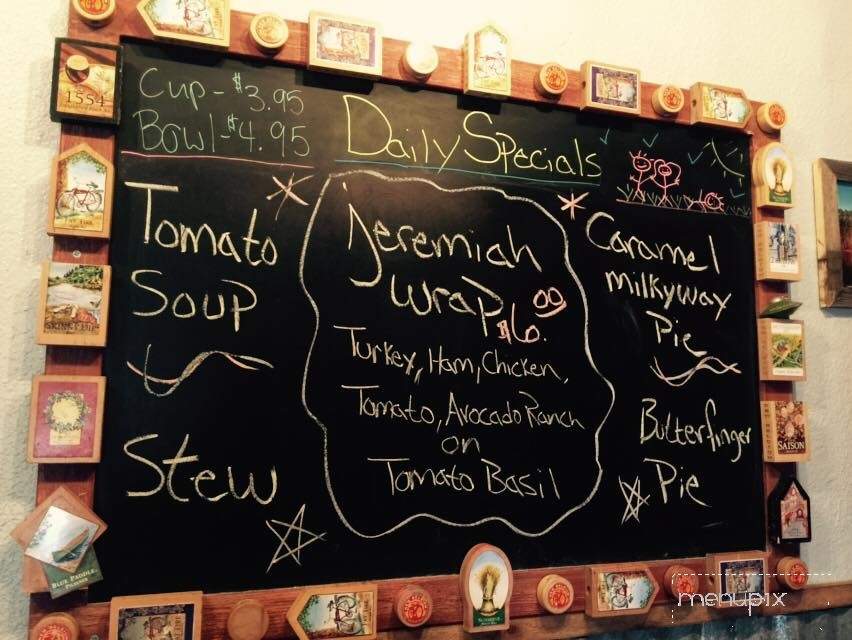 Cup - $3.95
Bowl - $4.95
Daily Specials
Tomato
Soup
Stew
Jeremiah
Wrap $6.00
Turkey, Ham, Chicken,
Tomato, Avocado Ranch
on
Tomato Basil
Caramel
Milkyway
Pie
Butterfinger
Pie
1554
SKINNY DIP
BLUE PADDLE
SAISON
menupix